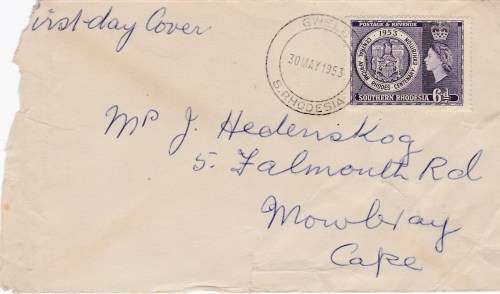 irst-day Cover
GWEL
30 MAY 1953
S. RHODESIA
POSTAGE & REVENUE
1953
RHODES CENTENARY EXHIBITION
SOUTHERN RHODESIA 6d
Mr J. Hedenskog
5. Falmouth Rd
Mowbray
Cape